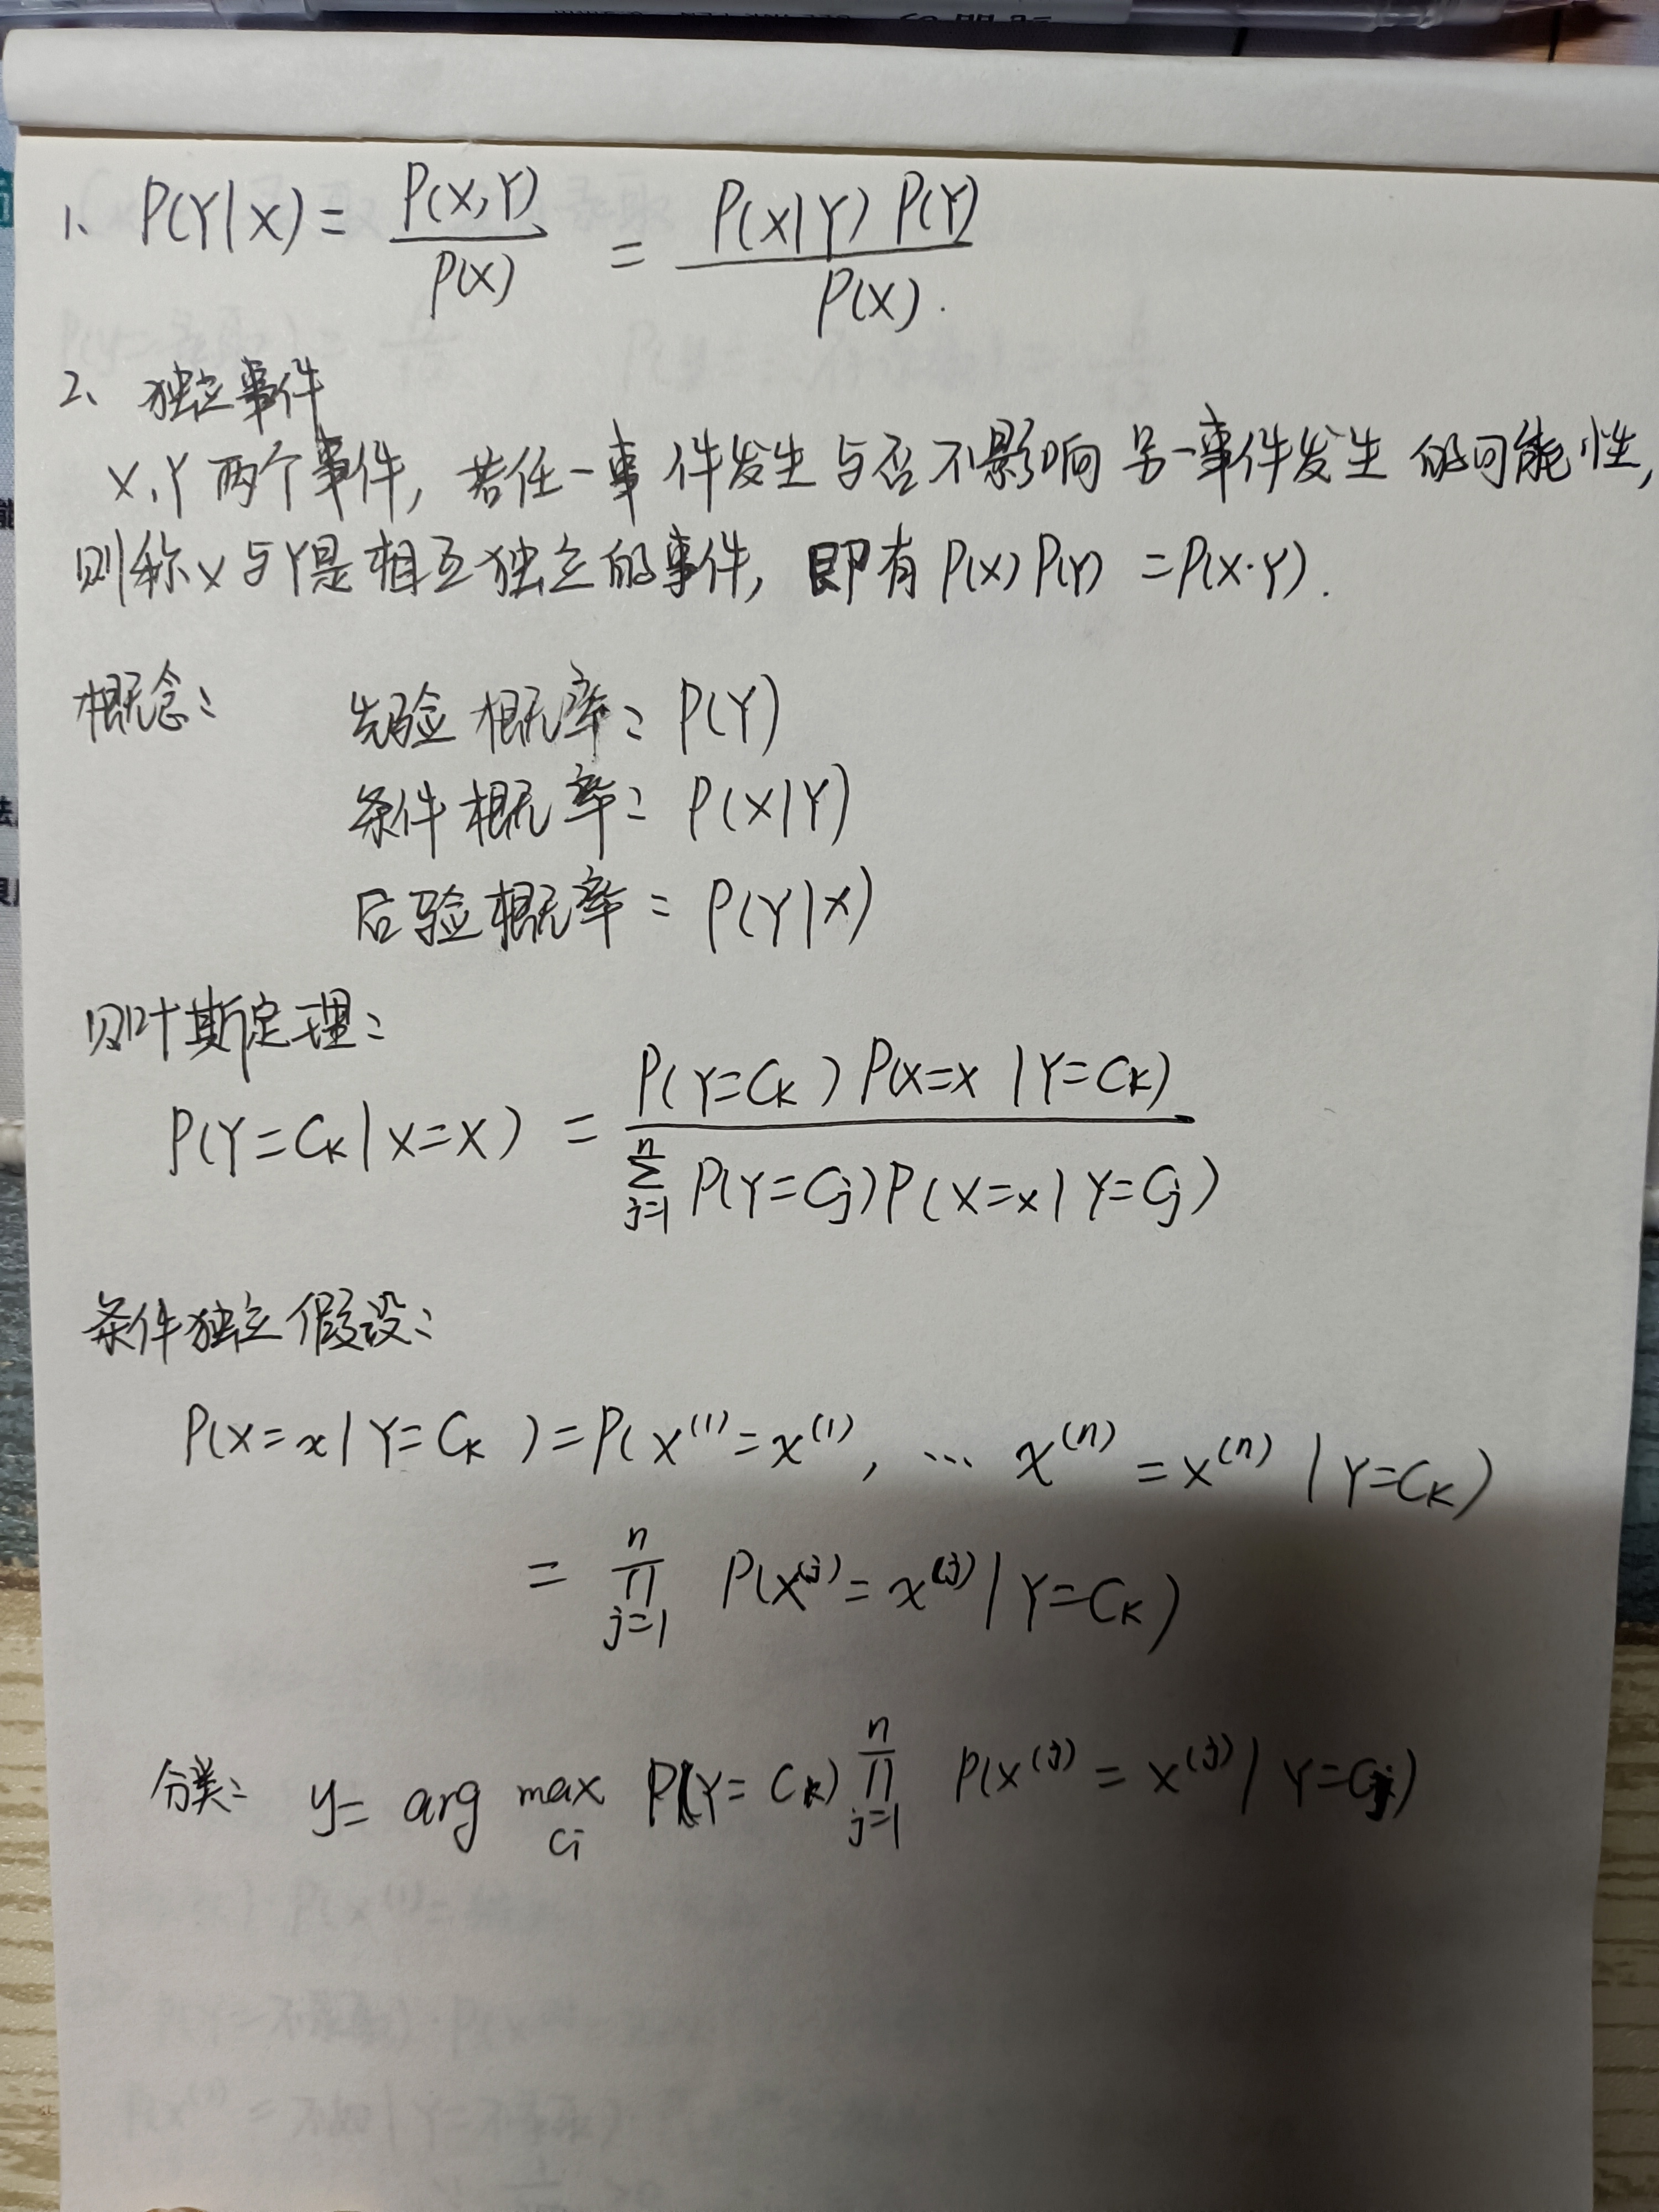 1、 P(Y|X) = P(X,Y) / P(X) = P(X|Y) P(Y) / P(X).
2、 独立事件
X,Y两个事件, 若任一事件发生与否不影响另一事件发生的可能性,
则称X与Y是相互独立的事件, 即有 P(X) P(Y) = P(X·Y).
概念: 先验概率: P(Y)
条件概率: P(X|Y)
后验概率: P(Y|X)
贝叶斯定理:
P(Y=Cₖ|X=x) = P(Y=Cₖ) P(X=x |Y=Cₖ) / ∑ⁿⱼ₌₁ P(Y=Cⱼ)P(X=x|Y=Cⱼ)
条件独立假设:
P(X=x|Y=Cₖ) = P(X⁽¹⁾=x⁽¹⁾, … x⁽ⁿ⁾=x⁽ⁿ⁾ |Y=Cₖ)
= ∏ⁿⱼ₌₁ P(X⁽ʲ⁾=x⁽ʲ⁾|Y=Cₖ)
分类: y= arg max Cᵢ P(Y=Cₖ) ∏ⁿⱼ₌₁ P(X⁽ʲ⁾=x⁽ʲ⁾|Y=Cⱼ)